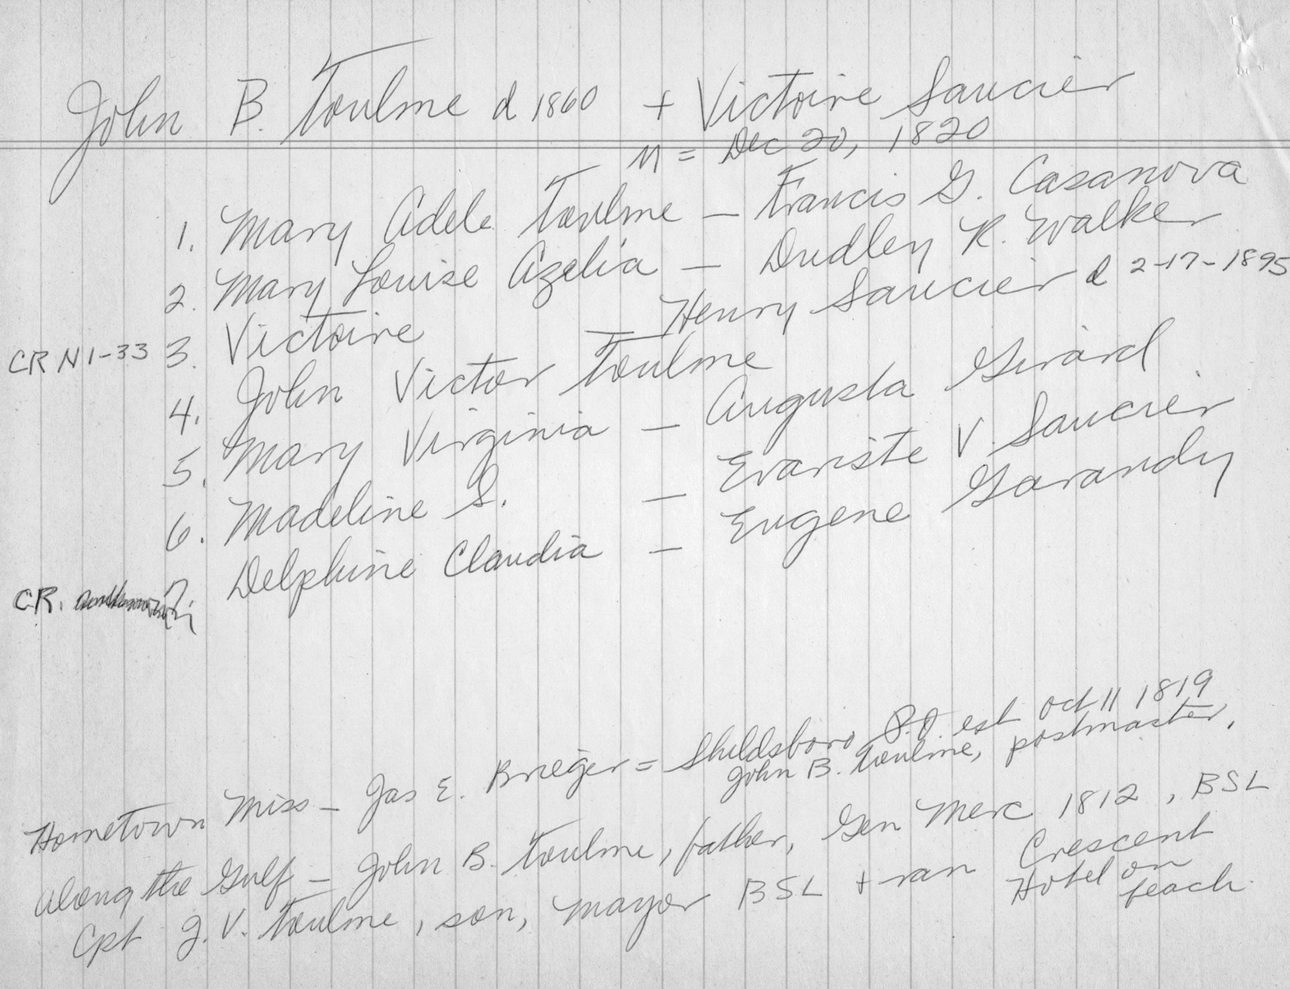 John B. Toulme d 1860 + Victoire Saucier
M = Dec 20, 1820
1. Mary Adele Toulme – Francis G. Casanova
2. Mary Louise Azelia – Dudley R. Walker
CR N1-33 3. Victoire – Henry Saucier d 2-17-1895
4. John Victor Toulme
5. Mary Virginia – Augusta Girard
6. Madeline S. – Evariste V. Saucier
CR. 7. Delphine Claudia – Eugene Garandy
Hometown Miss – Jas E. Brieger = Shildsboro P.O. est Oct 11 1819
John B. Toulme, postmaster.
Along the Gulf – John B. Toulme, father, Gen Merc 1812, BSL
Cpt J.V. Toulme, son, mayor BSL + ran Crescent
Hotel on
beach.